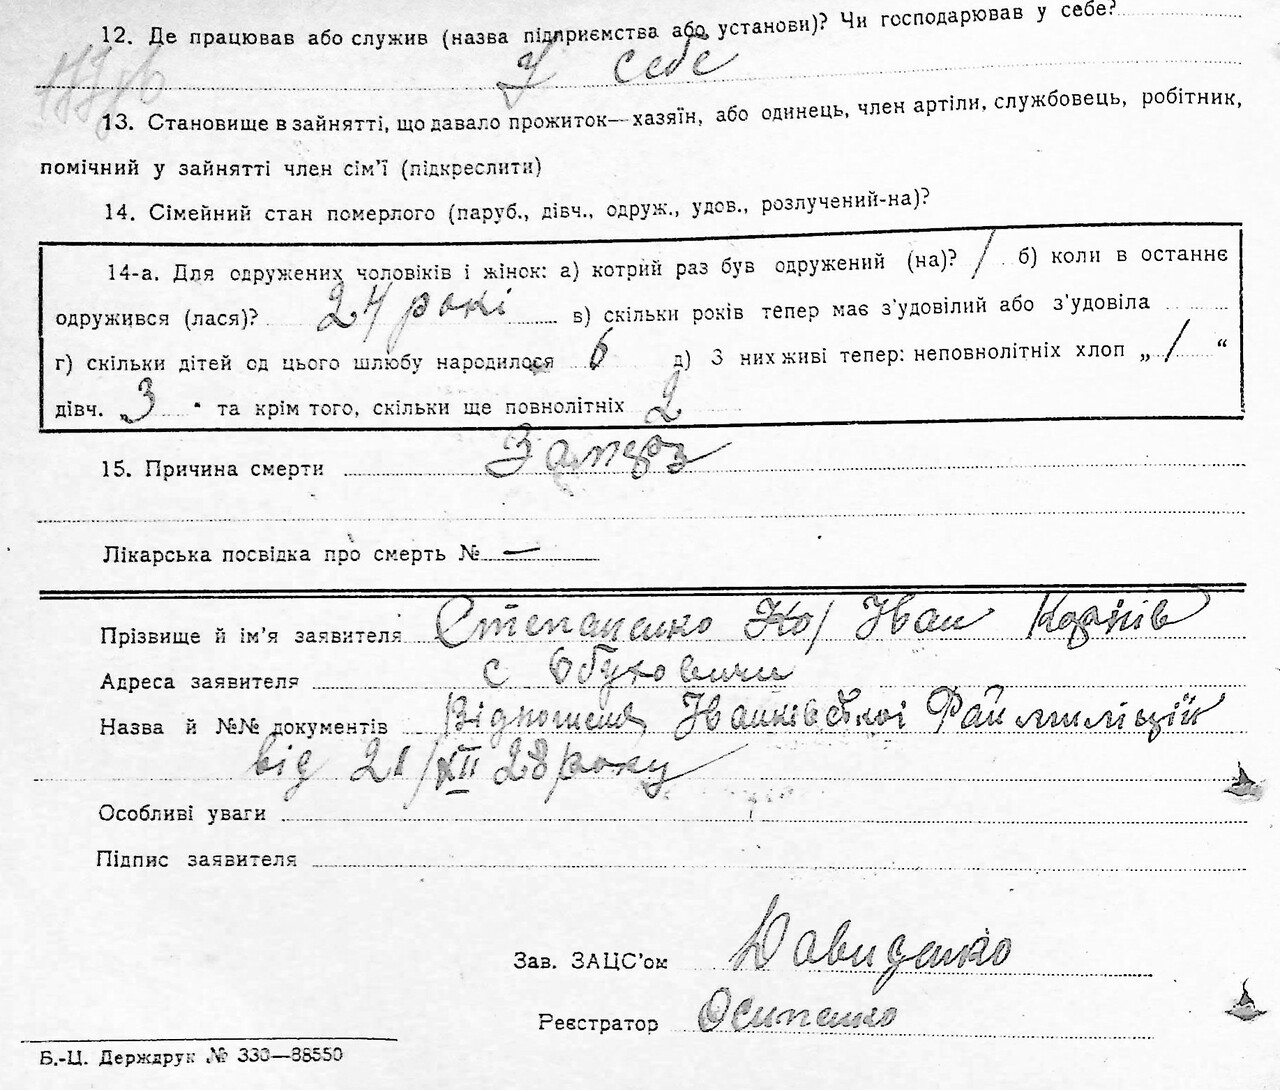 12. Де працював або служив (назва підприємства або установи)? Чи господарював у себе?
У себе
13. Становище в зайнятті, що давало прожиток—хазяїн, або одинець, член артіли, службовець, робітник,
помічний у зайнятті член сім'ї (підкреслити)
14. Сімейний стан померлого (паруб., дівч., одруж., удов., розлучений-на)?
14-а. Для одружених чоловіків і жінок: а) котрий раз був одружений (на)? 1 б) коли в останнє
одружився (лася)? 24 рокі в) скільки років тепер має з'удовілий або з'удовіла
г) скільки дітей од цього шлюбу народилося 6 д) З них живі тепер: неповнолітніх хлоп „ 1 “
дівч. „3 " та крім того, скільки ще повнолітніх 2
15. Причина смерти
Лікарська посвідка про смерть № —
Прізвище й ім'я заявителя Степаненко Ко/ Іван Корнів
Адреса заявителя с Обуховичи
Назва й №№ документів Відношення Іванківської Рай міліції
від 21/XII 28 року
Особливі уваги
Підпис заявителя
Зав. ЗАЦС'ом Давиденко
Реєстратор Осипенко
Б.-Ц. Держдрук № 330—38550